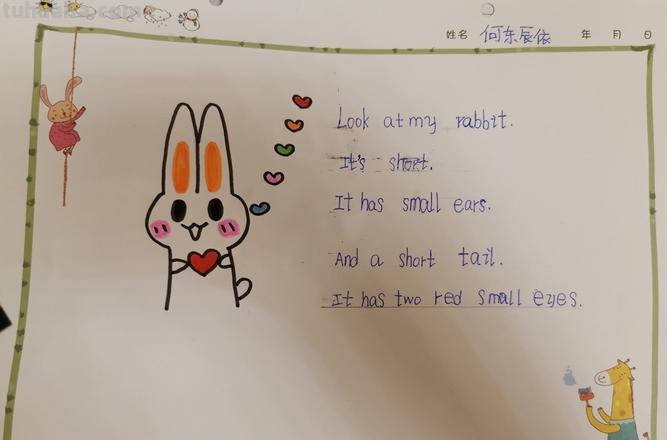 tuhuabao.com
姓名 何东辰依 年 月 日
Look at my rabbit.
It's short.
It has small ears.
And a short tail.
It has two red small eyes.